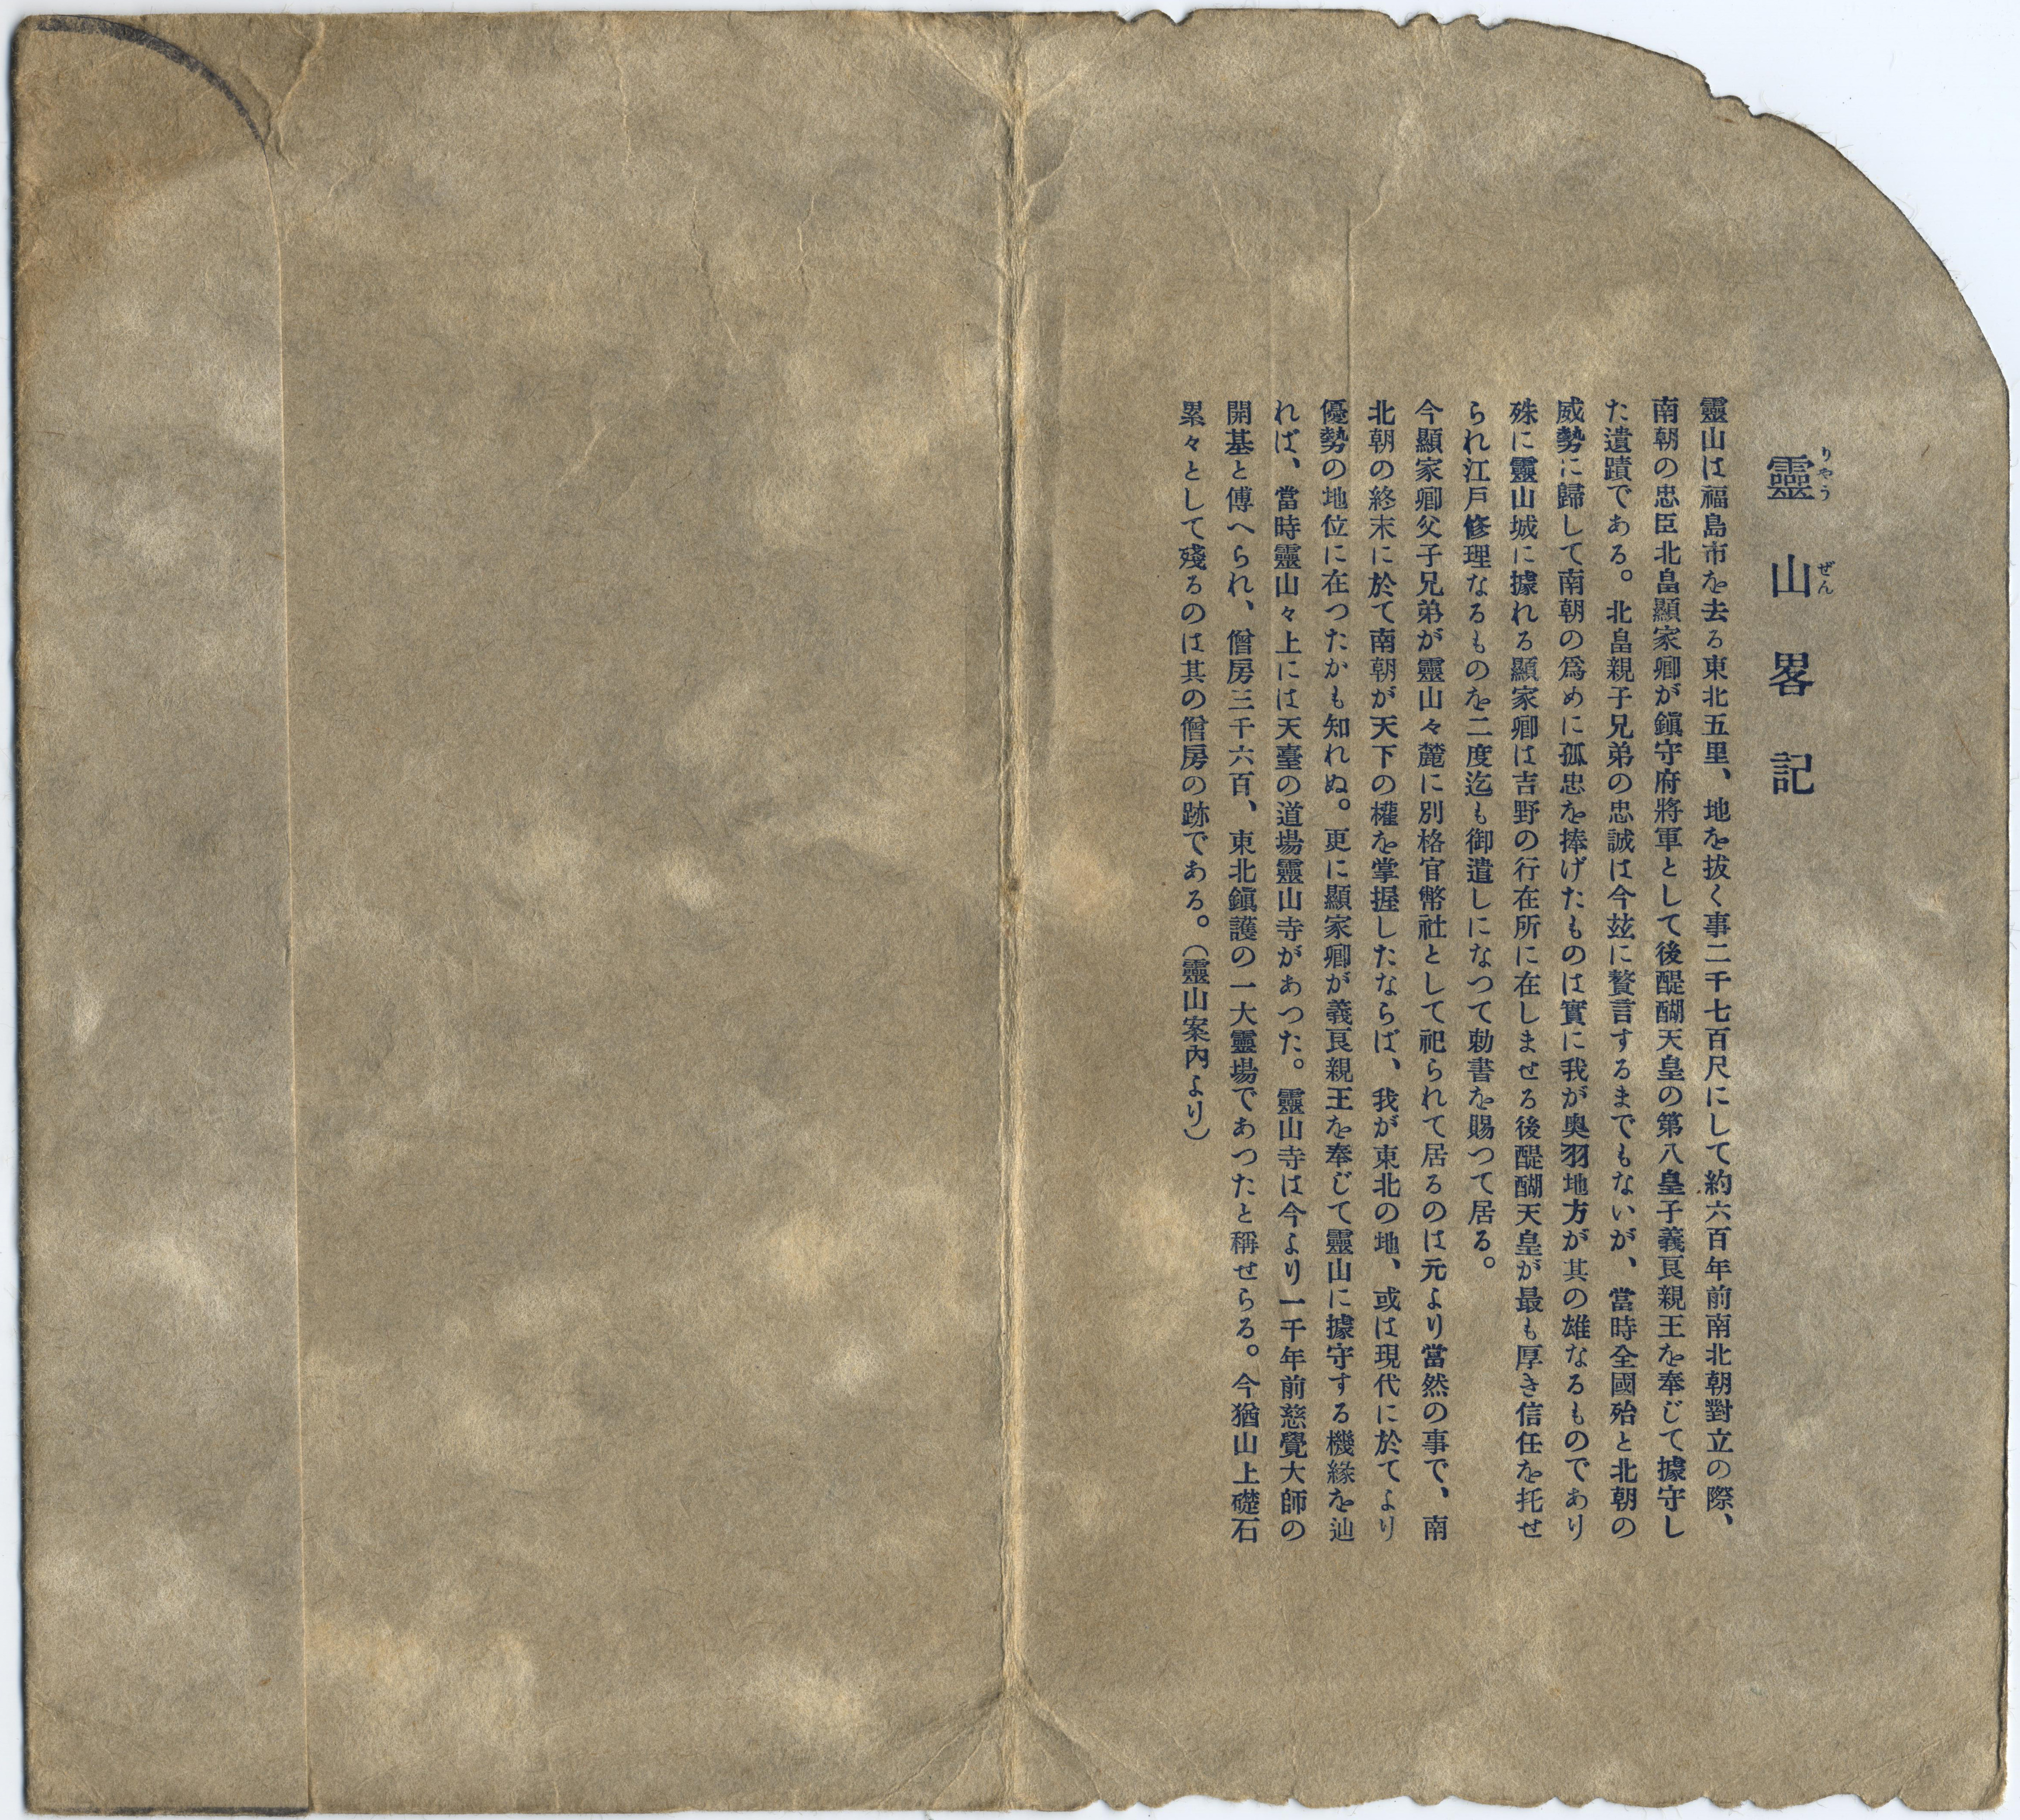 靈山畧記
りやうぜん
靈山は福島市を去る東北五里、地を抜く事二千七百尺にして約六百年前南北朝對立の際、
南朝の忠臣北畠顯家卿が鎭守府將軍として後醍醐天皇の第八皇子義良親王を奉じて據守し
た遺蹟である。北畠親子兄弟の忠誠は今玆に贅言するまでもないが、當時全國殆と北朝の
威勢に歸して南朝の爲めに孤忠を捧げたものは實に我が奥羽地方が其の雄なるものであり
殊に靈山城に據れる顯家卿は吉野の行在所に在しませる後醍醐天皇が最も厚き信任を托せ
られ江戸修理なるものを二度迄も御遣しになつて勅書を賜つて居る。
今顯家卿父子兄弟が靈山々麓に別格官幣社として祀られて居るのは元より當然の事で、南
北朝の終末に於て南朝が天下の權を掌握したならば、我が東北の地、或は現代に於てより
優勢の地位に在つたかも知れぬ。更に顯家卿が義良親王を奉じて靈山に據守する機緣を辿
れば、當時靈山々上には天臺の道場靈山寺があつた。靈山寺は今より一千年前慈覺大師の
開基と傳へられ、僧房三千六百、東北鎭護の一大靈場であつたと稱せらる。今猶山上礎石
累々として殘るのは其の僧房の跡である。（靈山案內より）